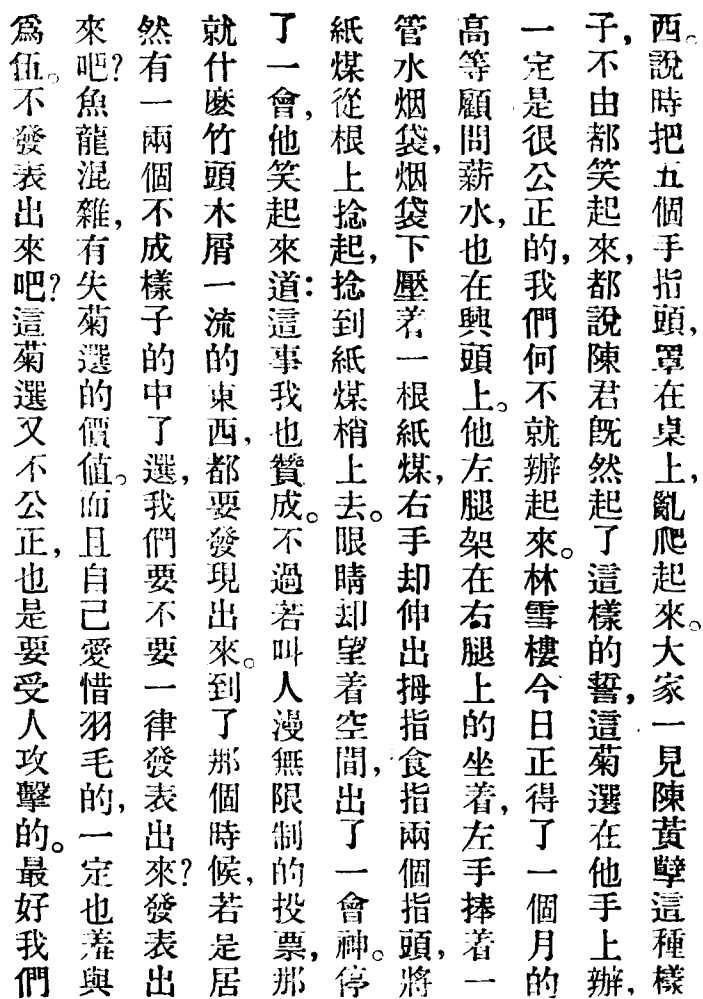 西。說時把五個手指頭，罩在桌上，亂爬起來。大家一見陳黃孽這種樣
子，不由都笑起來，都說陳君旣然起了這樣的誓，這菊選在他手上辦，
一定是很公正的，我們何不就辦起來。林雪樓今日正得了一個月的
高等顧問薪水，也在興頭上。他左腿架在右腿上的坐着，左手捧着一
管水烟袋，烟袋下壓着一根紙煤，右手却伸出拇指食指兩個指頭，將
紙煤從根上捻起，捻到紙煤梢上去。眼睛却望着空間，出了一會神。停
了一會，他笑起來道：這事我也贊成。不過若叫人漫無限制的投票，那
就什麽竹頭木屑一流的東西，都要發現出來。到了那個時候，若是居
然有一兩個不成樣子的中了選，我們要不要一律發表出來？發表出
來吧？魚龍混雜，有失菊選的價值。而且自己愛惜羽毛的，一定也羞與
爲伍。不發表出來吧？這菊選又不公正，也是要受人攻擊的。最好我們